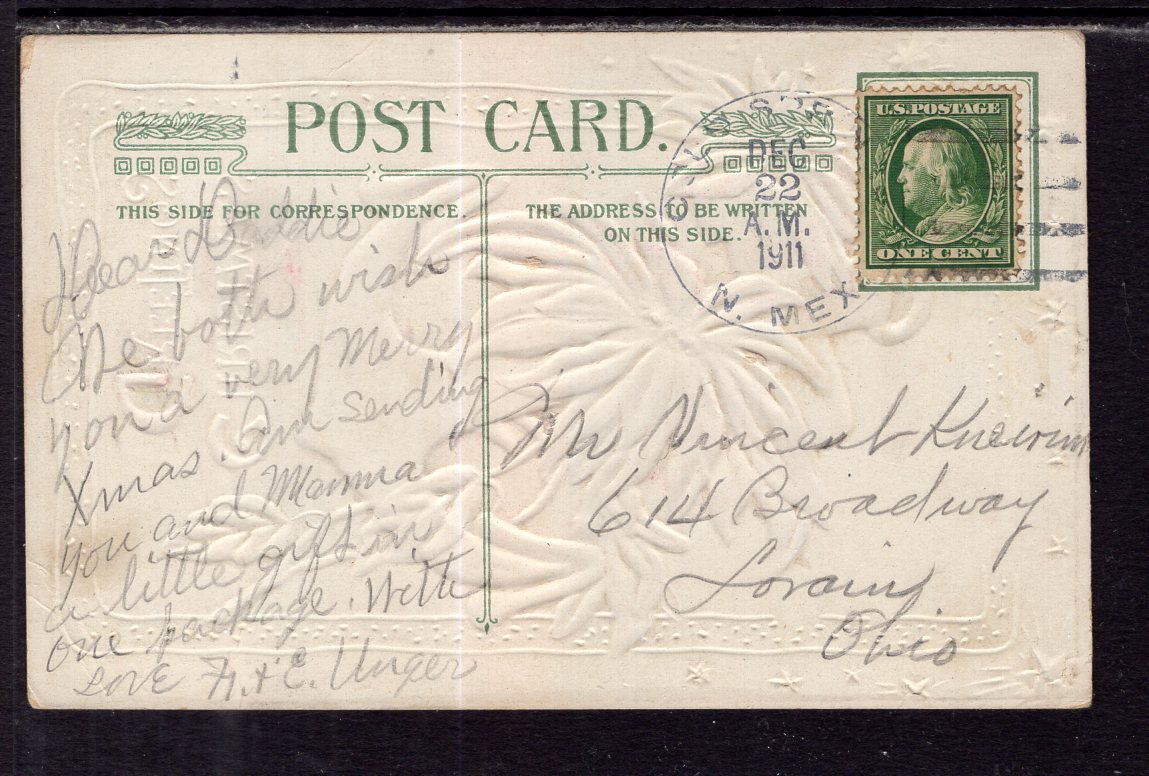 POST CARD.
THIS SIDE FOR CORRESPONDENCE.
THE ADDRESS TO BE WRITTEN
ON THIS SIDE.
DEC
22
A.M.
1911
N. MEX
U.S. POSTAGE
ONE CENT
Dear Daddie
We both wish
you a very Merry
Xmas. Am sending
you and Mamma
a little gift in
one package. With
Love H. & E. Unger
Mr Vincent
614 Broadway
Lorain
Ohio